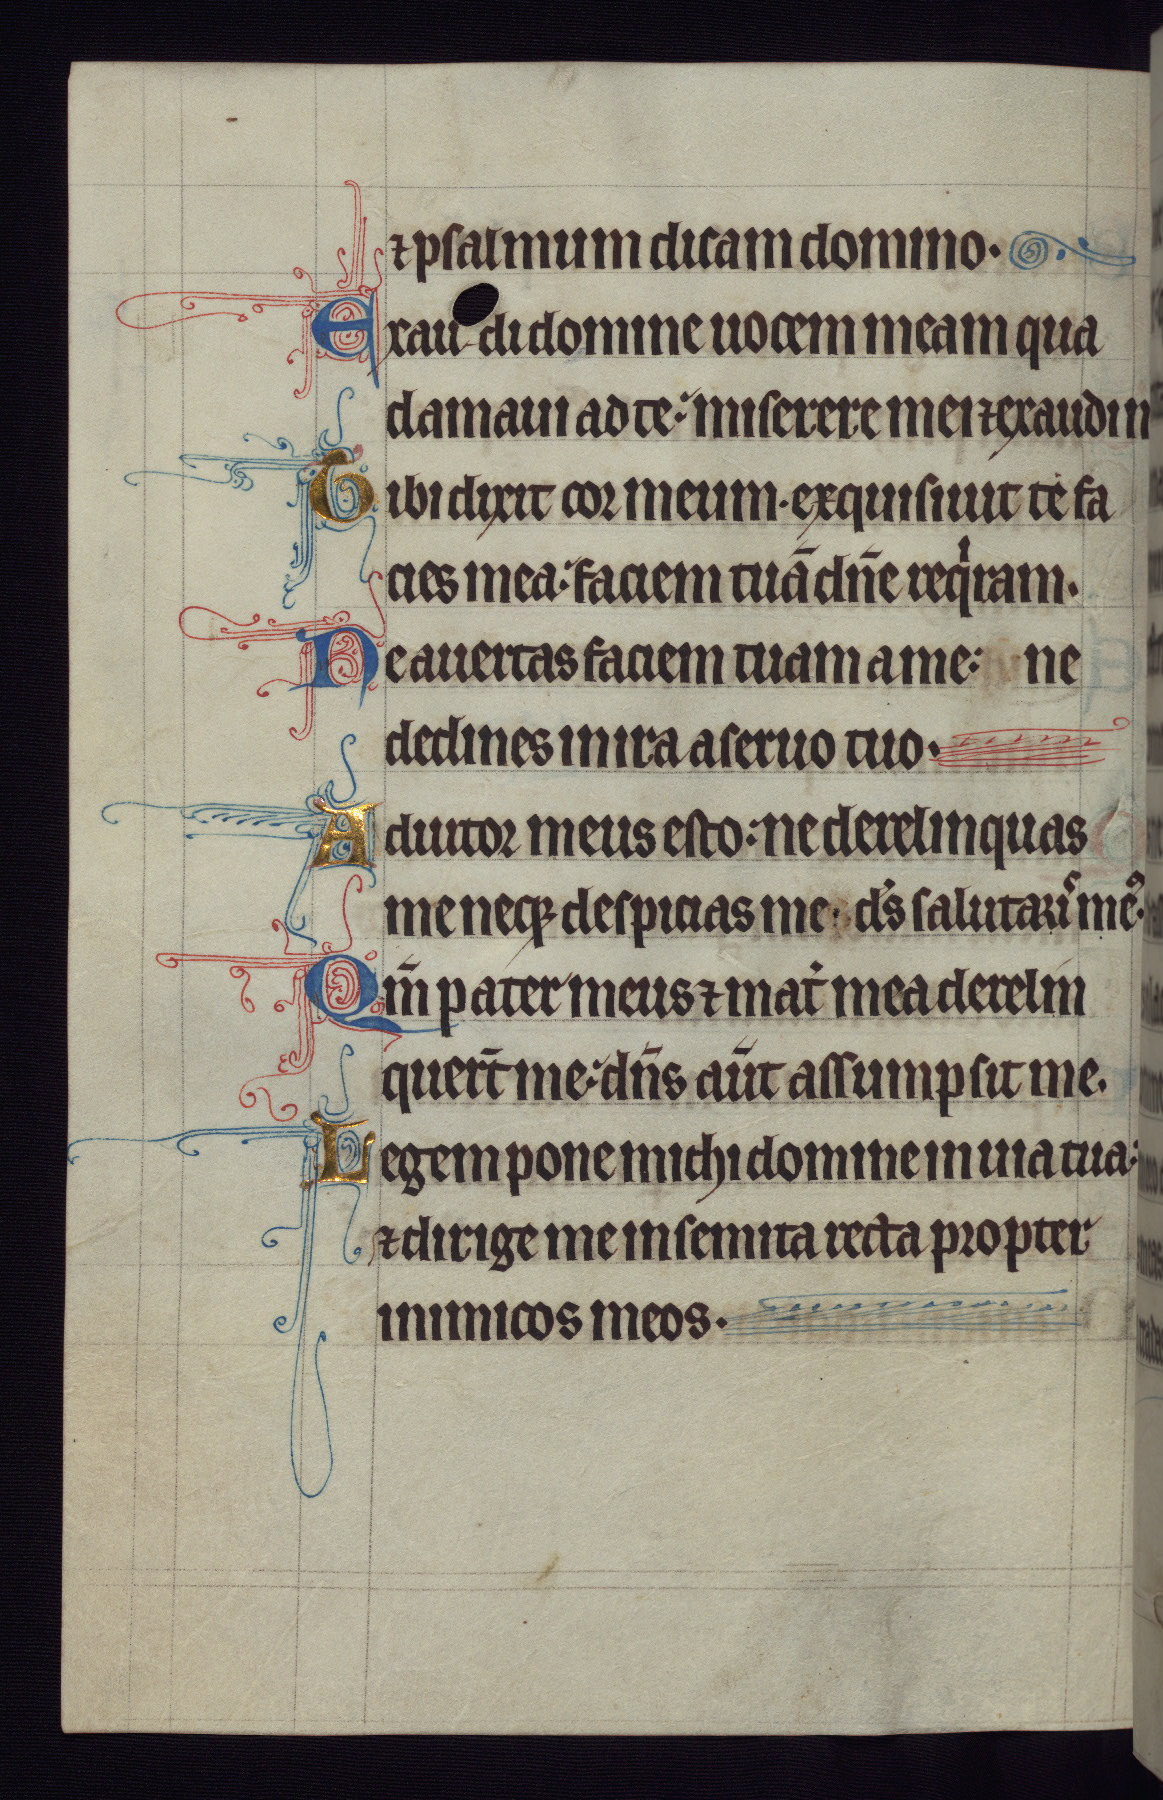 ⁊ psalmum dicam domino.
Exaudi domine uocem meam qua
clamaui ad te: miserere mei ⁊ exaudi m
Tibi dixit cor meum. exquisiuit te fa
cies mea: faciem tuā dn̄e reqͥram.
Ne auertas faciem tuam a me: ne
declines in ira a seruo tuo.
Adiutor meus esto: ne derelinquas
me neqꝫ despicias me. ds̄ salutarıͥs meꝰ.
Qm̄ pater meus ⁊ mat̉ mea derelin
quer̄t me: dn̄s aūt assumpsit me.
Legem pone michi domine in uia tua:
⁊ dirige me in semita recta propter
inimicos meos.